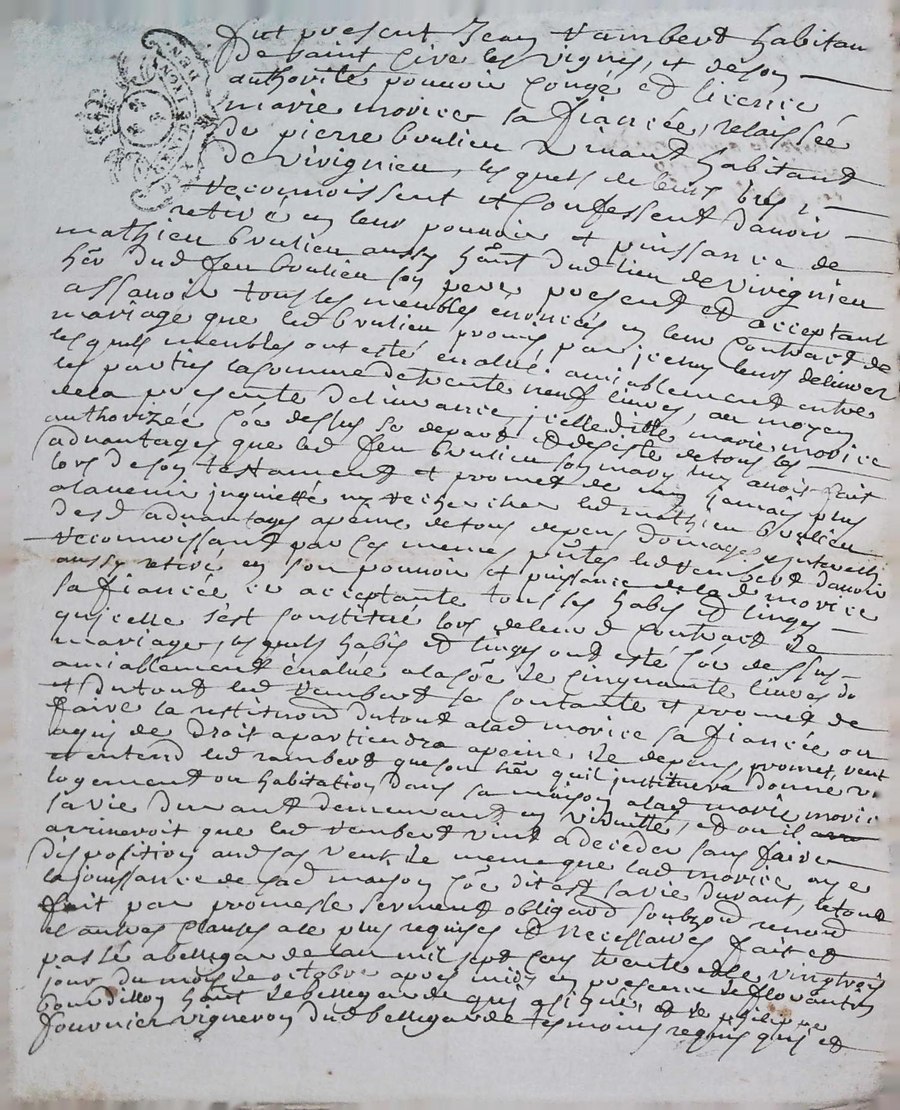 fut present Jean Rambert habitan
de saint Cire les vignes, et de son
authorité pouvoir congé et licence
marie morice sa fiancée, relaissée
de pierre brulieu vivant habitant
de Virignieu, lesquels de leurs
reconnoissent et confessent d'avoir
retiré en leur pouvoir et puissance de
mathieu brulieu aussy hant dud lieu de virignieu
her dud feu brulieu son pere present et acceptant
assavoir tous les meubles enoncés en leur contract de
mariage que led brulieu promis par icelluy leurs delivrer
lesquels meubles ont esté evalué amiablement entre
les parties la somme de trente neuf livres, au moyen
de la presente delivrance, icelle ditte marie morice
authorizée coe dessus se depart et desiste de tous les
advantages que led feu brulieu son mary luy avoit fait
lors de son testament et promet de n'en jamais plus
alavenir inquietté ny rechercher led mathieu brulieu
desd advantages apeine de tous depens domages
reconnoissant par ces memes pntes led rambert d'avoir
aussy retiré en son pouvoir et puissance de lad morice
sa fiancée ici acceptante tous les habis et linges
qu'icelle s'est constitué lors de leurd contract de
mariage, lesquels habis et linges ont esté coe dessus
amiablement evalué ala soe de cinquante livres
et du tout led rambert se contante et promet de
faire la restitution du tout alad morice sa fiancée ou
aquy de droit apartiendra apeine de depens, promet, veut
et entend led rambert que son her quil instituera donne
logement ou habitation dans sa maison alad marie morice
sa vie durant demeurant en viduitté, et ou il
arriveroit que led rambert vint a deceder sans faire
disposition aud cas veut de meme que lad morice aye
la jouissance de sad maison coe dit est sa vie durant, le tout
fait par promesse serment obligaon soubzon renon
et autres clauses ale plus requises et necessaires fait et
passé abellegarde lan mil sept cens trente le vingtrois
jour du mois de octobre apres midy en presence de florantin
hant de bellegarde quy a signé, et de philippe
fournier vigneron dud bellegarde tesmoins requis quy et